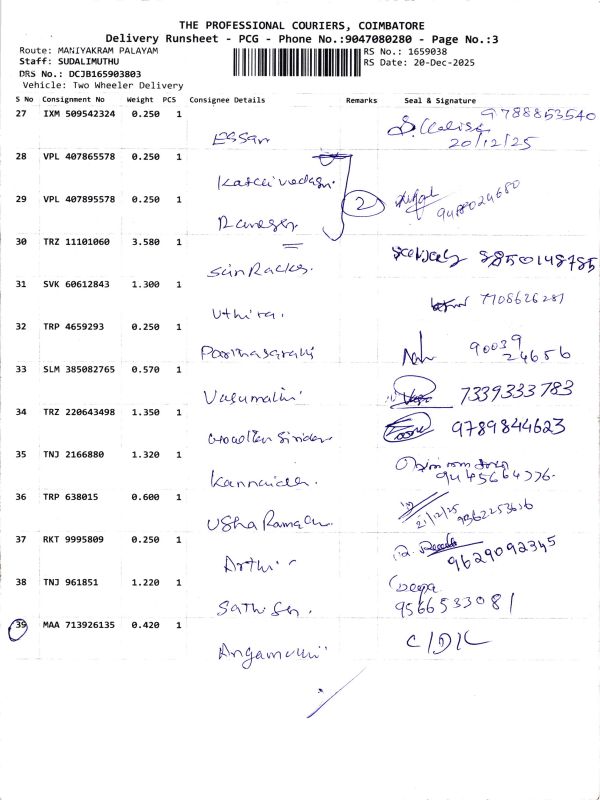 THE PROFESSIONAL COURIERS, COIMBATORE
Delivery Runsheet - PCG - Phone No.:9047080280 - Page No.:3
Route: MANIYAKRAM PALAYAM
RS No.: 1659038
Staff: SUDALIMUTHU
RS Date: 20-Dec-2025
DRS No.: DCJB165903803
Vehicle: Two Wheeler Delivery
S No Consignment No Weight PCS Consignee Details Remarks Seal & Signature
27 IXM 509542324 0.250 1 9788853540
Essar 20/12/25
28 VPL 407865578 0.250 1
29 VPL 407895578 0.250 1 2
9488024680
30 TRZ 11101060 3.580 1
8850148785
31 SVK 60612843 1.300 1
7708626281
Uthira.
32 TRP 4659293 0.250 1
90039
24656
Parthasarathi
33 SLM 385082765 0.570 1
7339333783
Vasumathi
34 TRZ 220643498 1.350 1
9789844623
35 TNJ 2166880 1.320 1
Kannan
36 TRP 638015 0.600 1
21/12/25
Usha Raman
37 RKT 9995809 0.250 1
9629092345
Arthi
38 TNJ 961851 1.220 1 Deepa
9566533081
Sathish.
39 MAA 713926135 0.420 1
C/D/L
Angamuthu